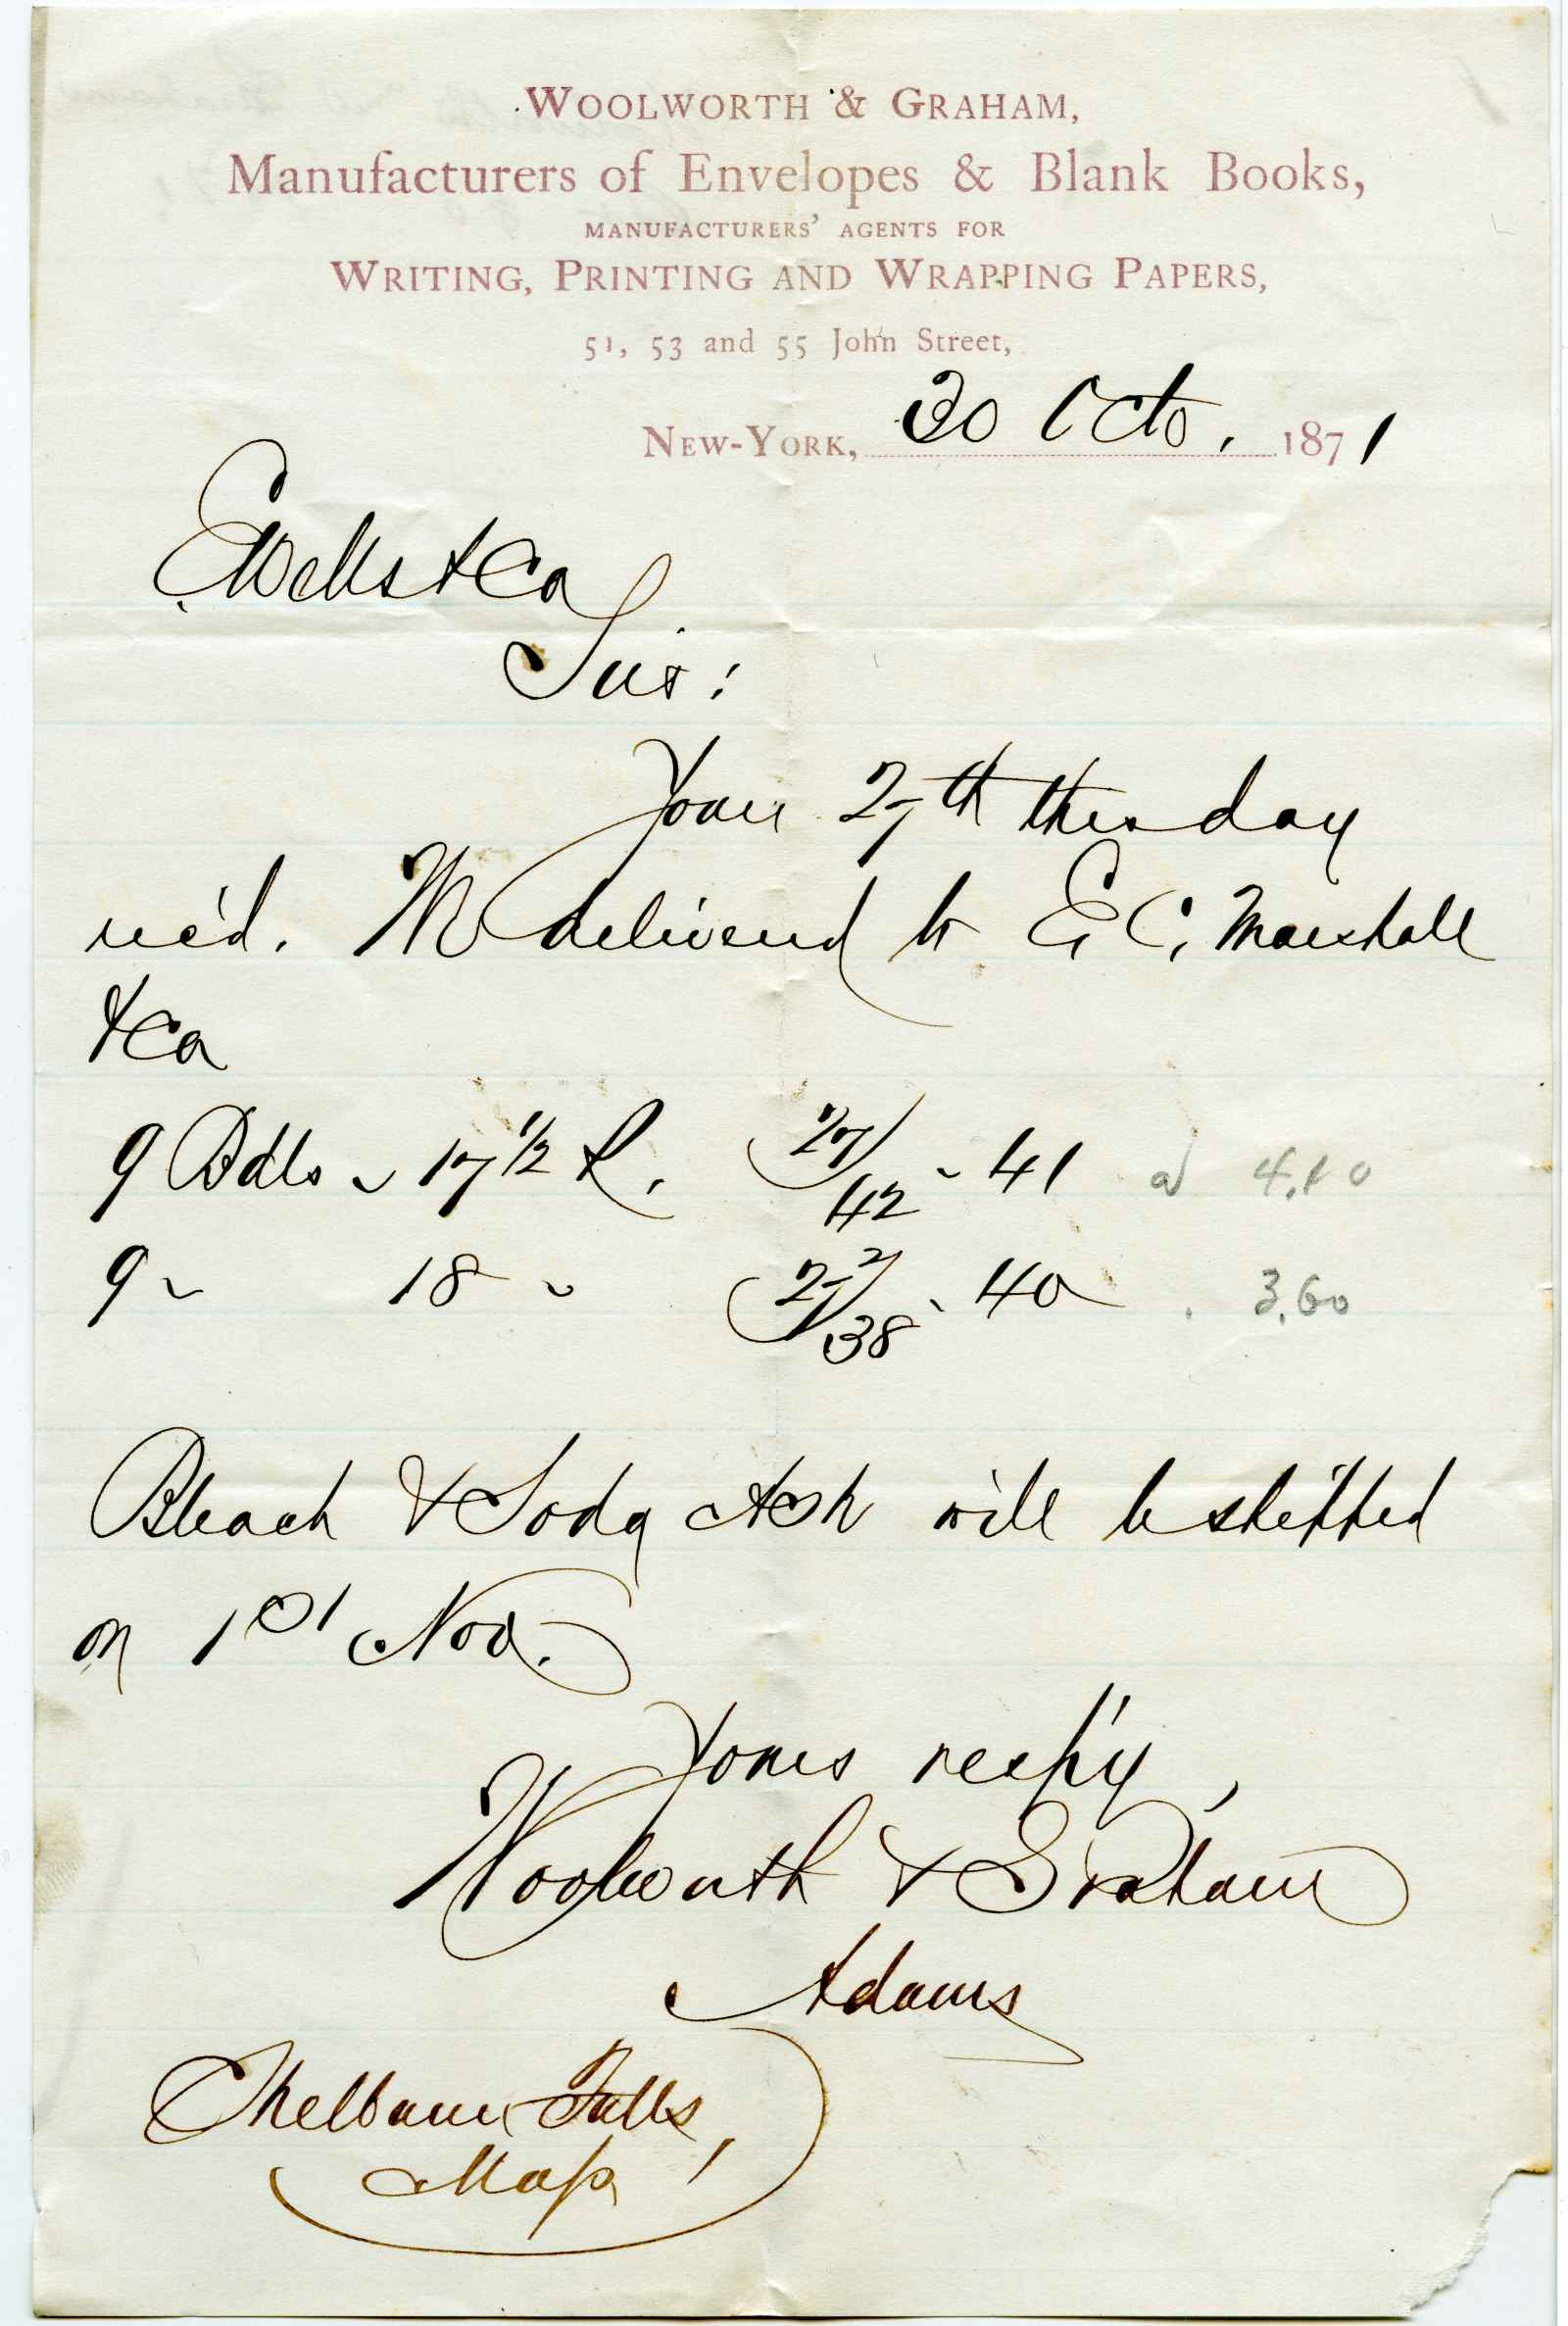 WOOLWORTH & GRAHAM,
Manufacturers of Envelopes & Blank Books,
MANUFACTURERS' AGENTS FOR
WRITING, PRINTING AND WRAPPING PAPERS,
51, 53 and 55 John Street,
NEW-YORK, 30 Octo. 1871
E Wells & Co
Sirs:
Your 27th this day
rec'd. We delivered to E C. Marshall
& Co
9 Bdls ~ 17 1/2 R. 27/42 - 41 a 4.10
9 ~ 18 ~ 38 - 40 3.60
Bleach & Soda Ash will be shipped
on 1st Nov.
Yours resp'y,
Woolworth & Graham
Adams
Shelburne Falls,
Mass